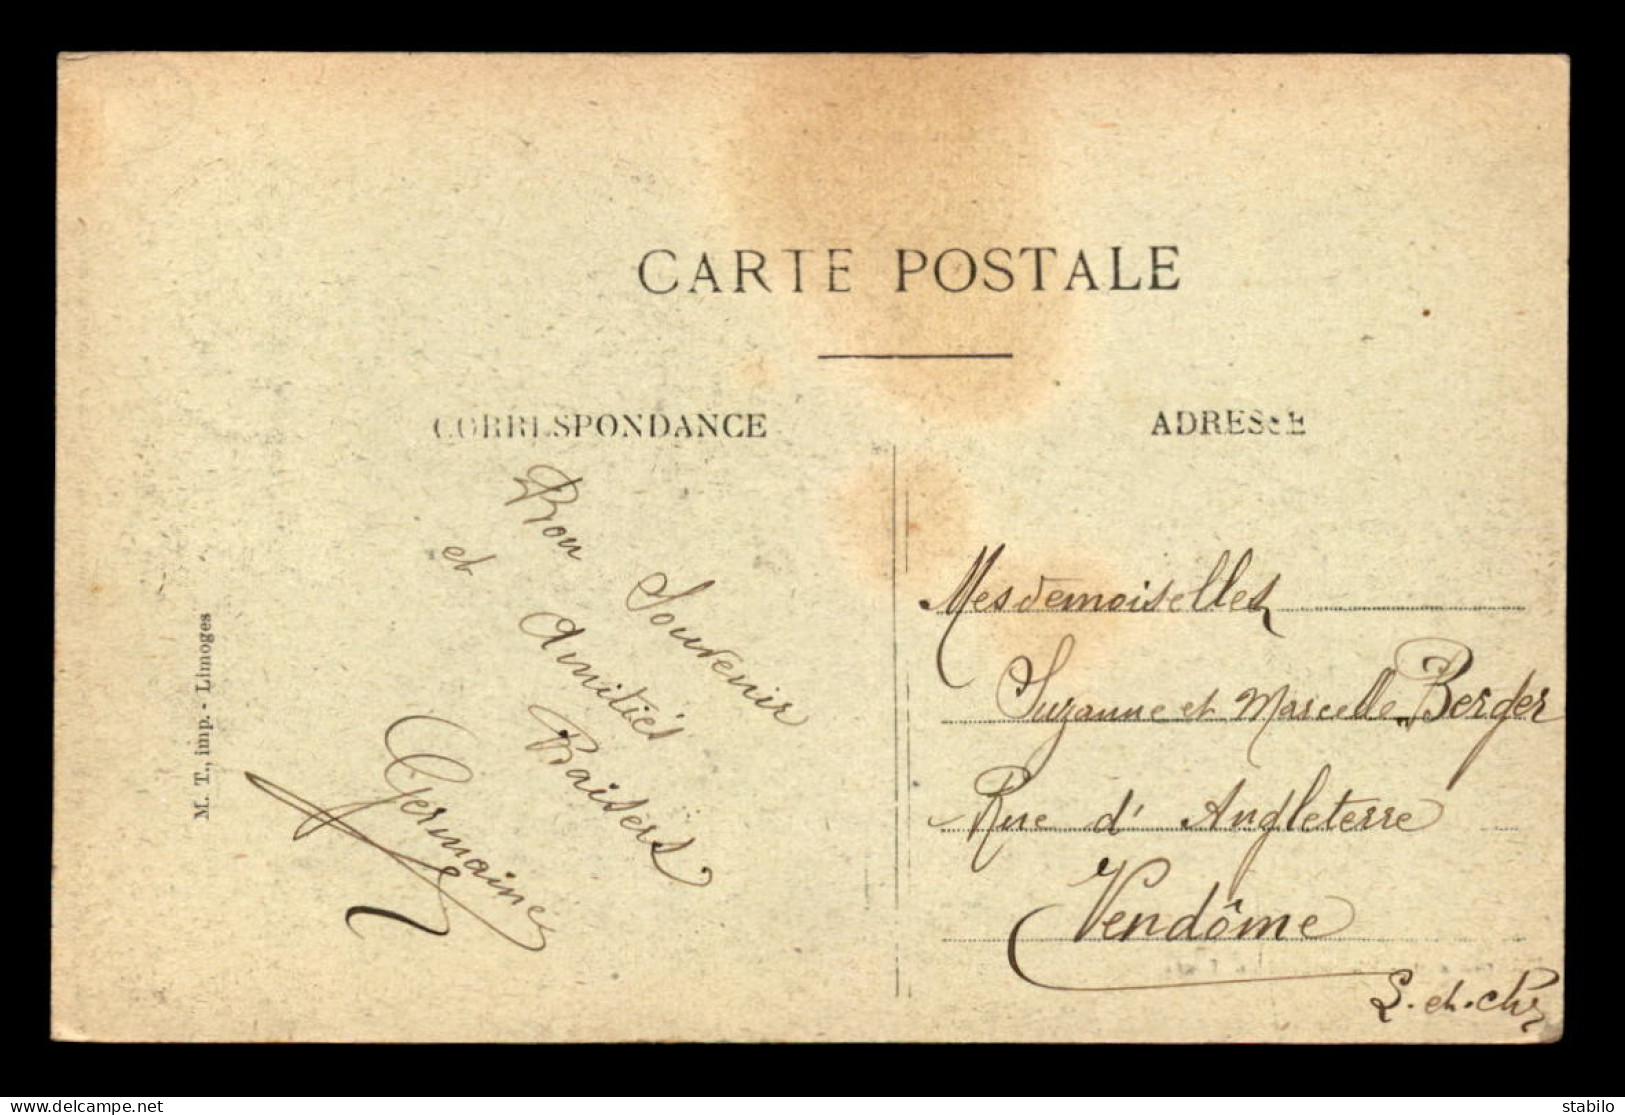 CARTE POSTALE
CORRESPONDANCE
ADRESSE
Bon Souvenir
et Amitiés
Baisers
Germaine
M. T., imp. - Limoges
Mesdemoiselles
Suzanne et Marcelle Berger
Rue d'Angleterre
Vendôme
L.-et.-Cher
delcampe.net
stabilo